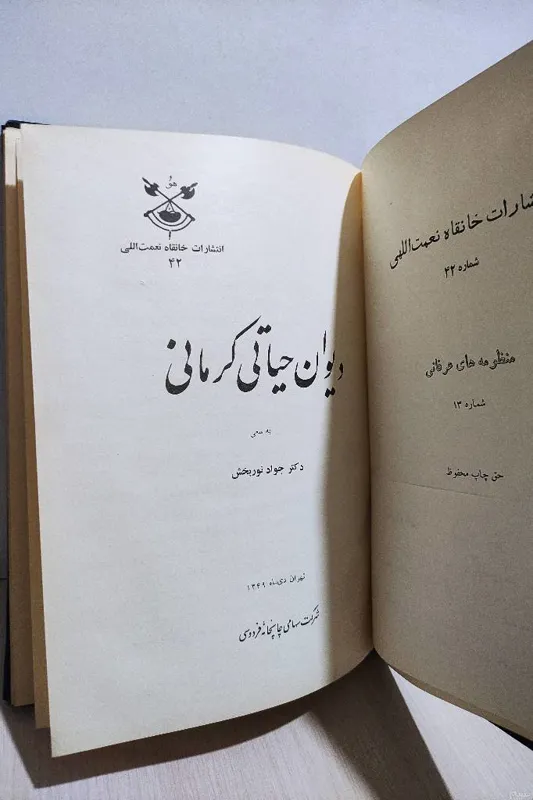 انتشارات خانقاه نعمت‌اللهی
شماره ۴۲
منظومه های عرفانی
شماره ۱۳
حق چاپ محفوظ
هو
انتشارات خانقاه نعمت‌اللهی
۴۲
دیوان حیاتی کرمانی
به سعی
دکتر جواد نوربخش
تهران دی‌ماه ۱۳۴۹
شرکت سهامی چاپخانهٔ فردوسی